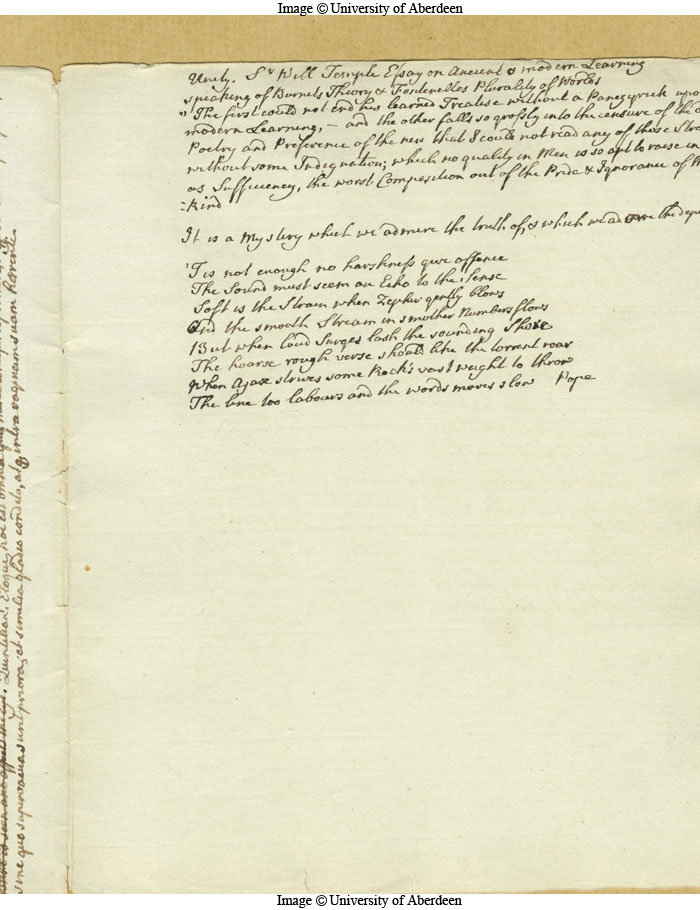 Image © University of Aberdeen
Unity. Sr Will Temple Essay on Ancient & modern Learning
speaking of Burnets Theory & Fontenelles Plurality of Worlds
" The first could not end his learned Treatise without a Panegyrick upo
modern Learning, – and the other falls so grossly into the censure of the O
Poetry and Preference of the new that I could not read any of those Stra
without some Indignation; which no quality in Men is so apt to raise in
as Sufficiency, the worst Composition out of the Pride & Ignorance of M
:kind
It is a Mystery which we admire the truth of, & which we adore the dep
'Tis not enough no harshness give offence
The Sound must seem an Echo to the Sense
Soft is the Strain when Zephyr gently blows
And the smooth Stream in smother Numbers flows
But when loud Surges lash the sounding Shore
The hoarse rough verse should like the torrent roar
When Ajax strives some Rock's vast weight to throw
The line too labours and the words moves slow Pope
sine quo supervacua sunt priora, et similia gladio condito, atq intra vaginam suam hærenti.
Image © University of Aberdeen